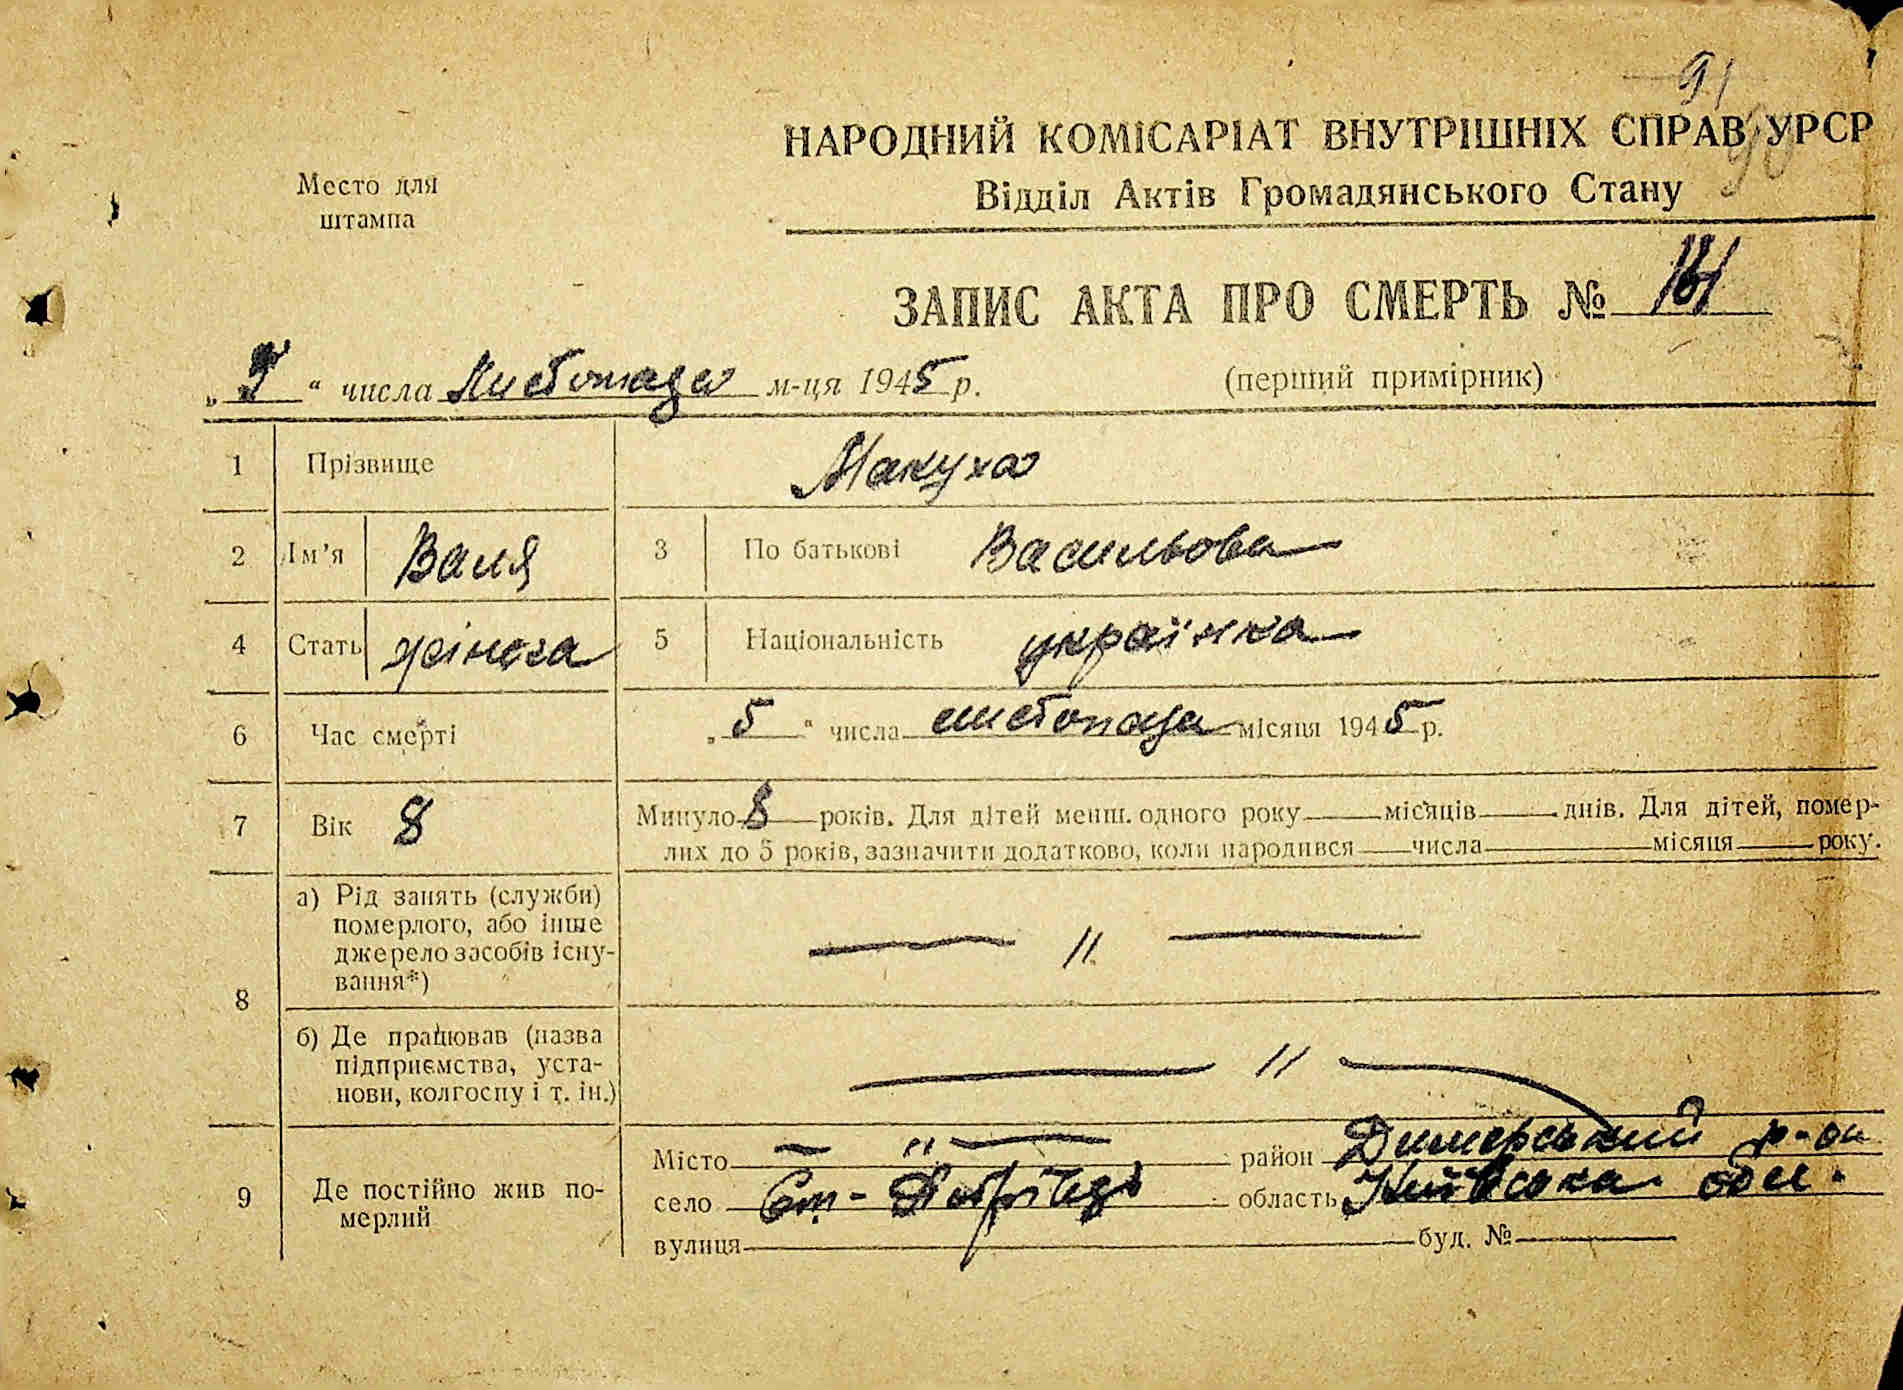 91
90
НАРОДНИЙ КОМІСАРІАТ ВНУТРІШНІХ СПРАВ УРСР
Відділ Актів Громадянського Стану
Место для
штампа
ЗАПИС АКТА ПРО СМЕРТЬ № 161
" " числа Листопада м-ця 1945 р.
(перший примірник)
1 Прізвище Макуха
2 Ім'я Валя 3 По батькові Васильовна
4 Стать жіноча 5 Національність українка
6 Час смерті „5" числа листопада місяця 1945 р.
7 Вік 8 Минуло 8 років. Для дітей менш. одного року місяців днів. Для дітей, помер-
лих до 5 років, зазначити додатково, коли народився числа місяця року.
8 а) Рід занять (служби)
померлого, або інше
джерело засобів існу-
вання*)
— // —
б) Де працював (назва
підприємства, уста-
нови, колгоспу і т. ін.)
— // —
9 Де постійно жив по-
мерлий
Місто — // — район Димерський р-он
село Ст- область Київська обл.
вулиця буд. №